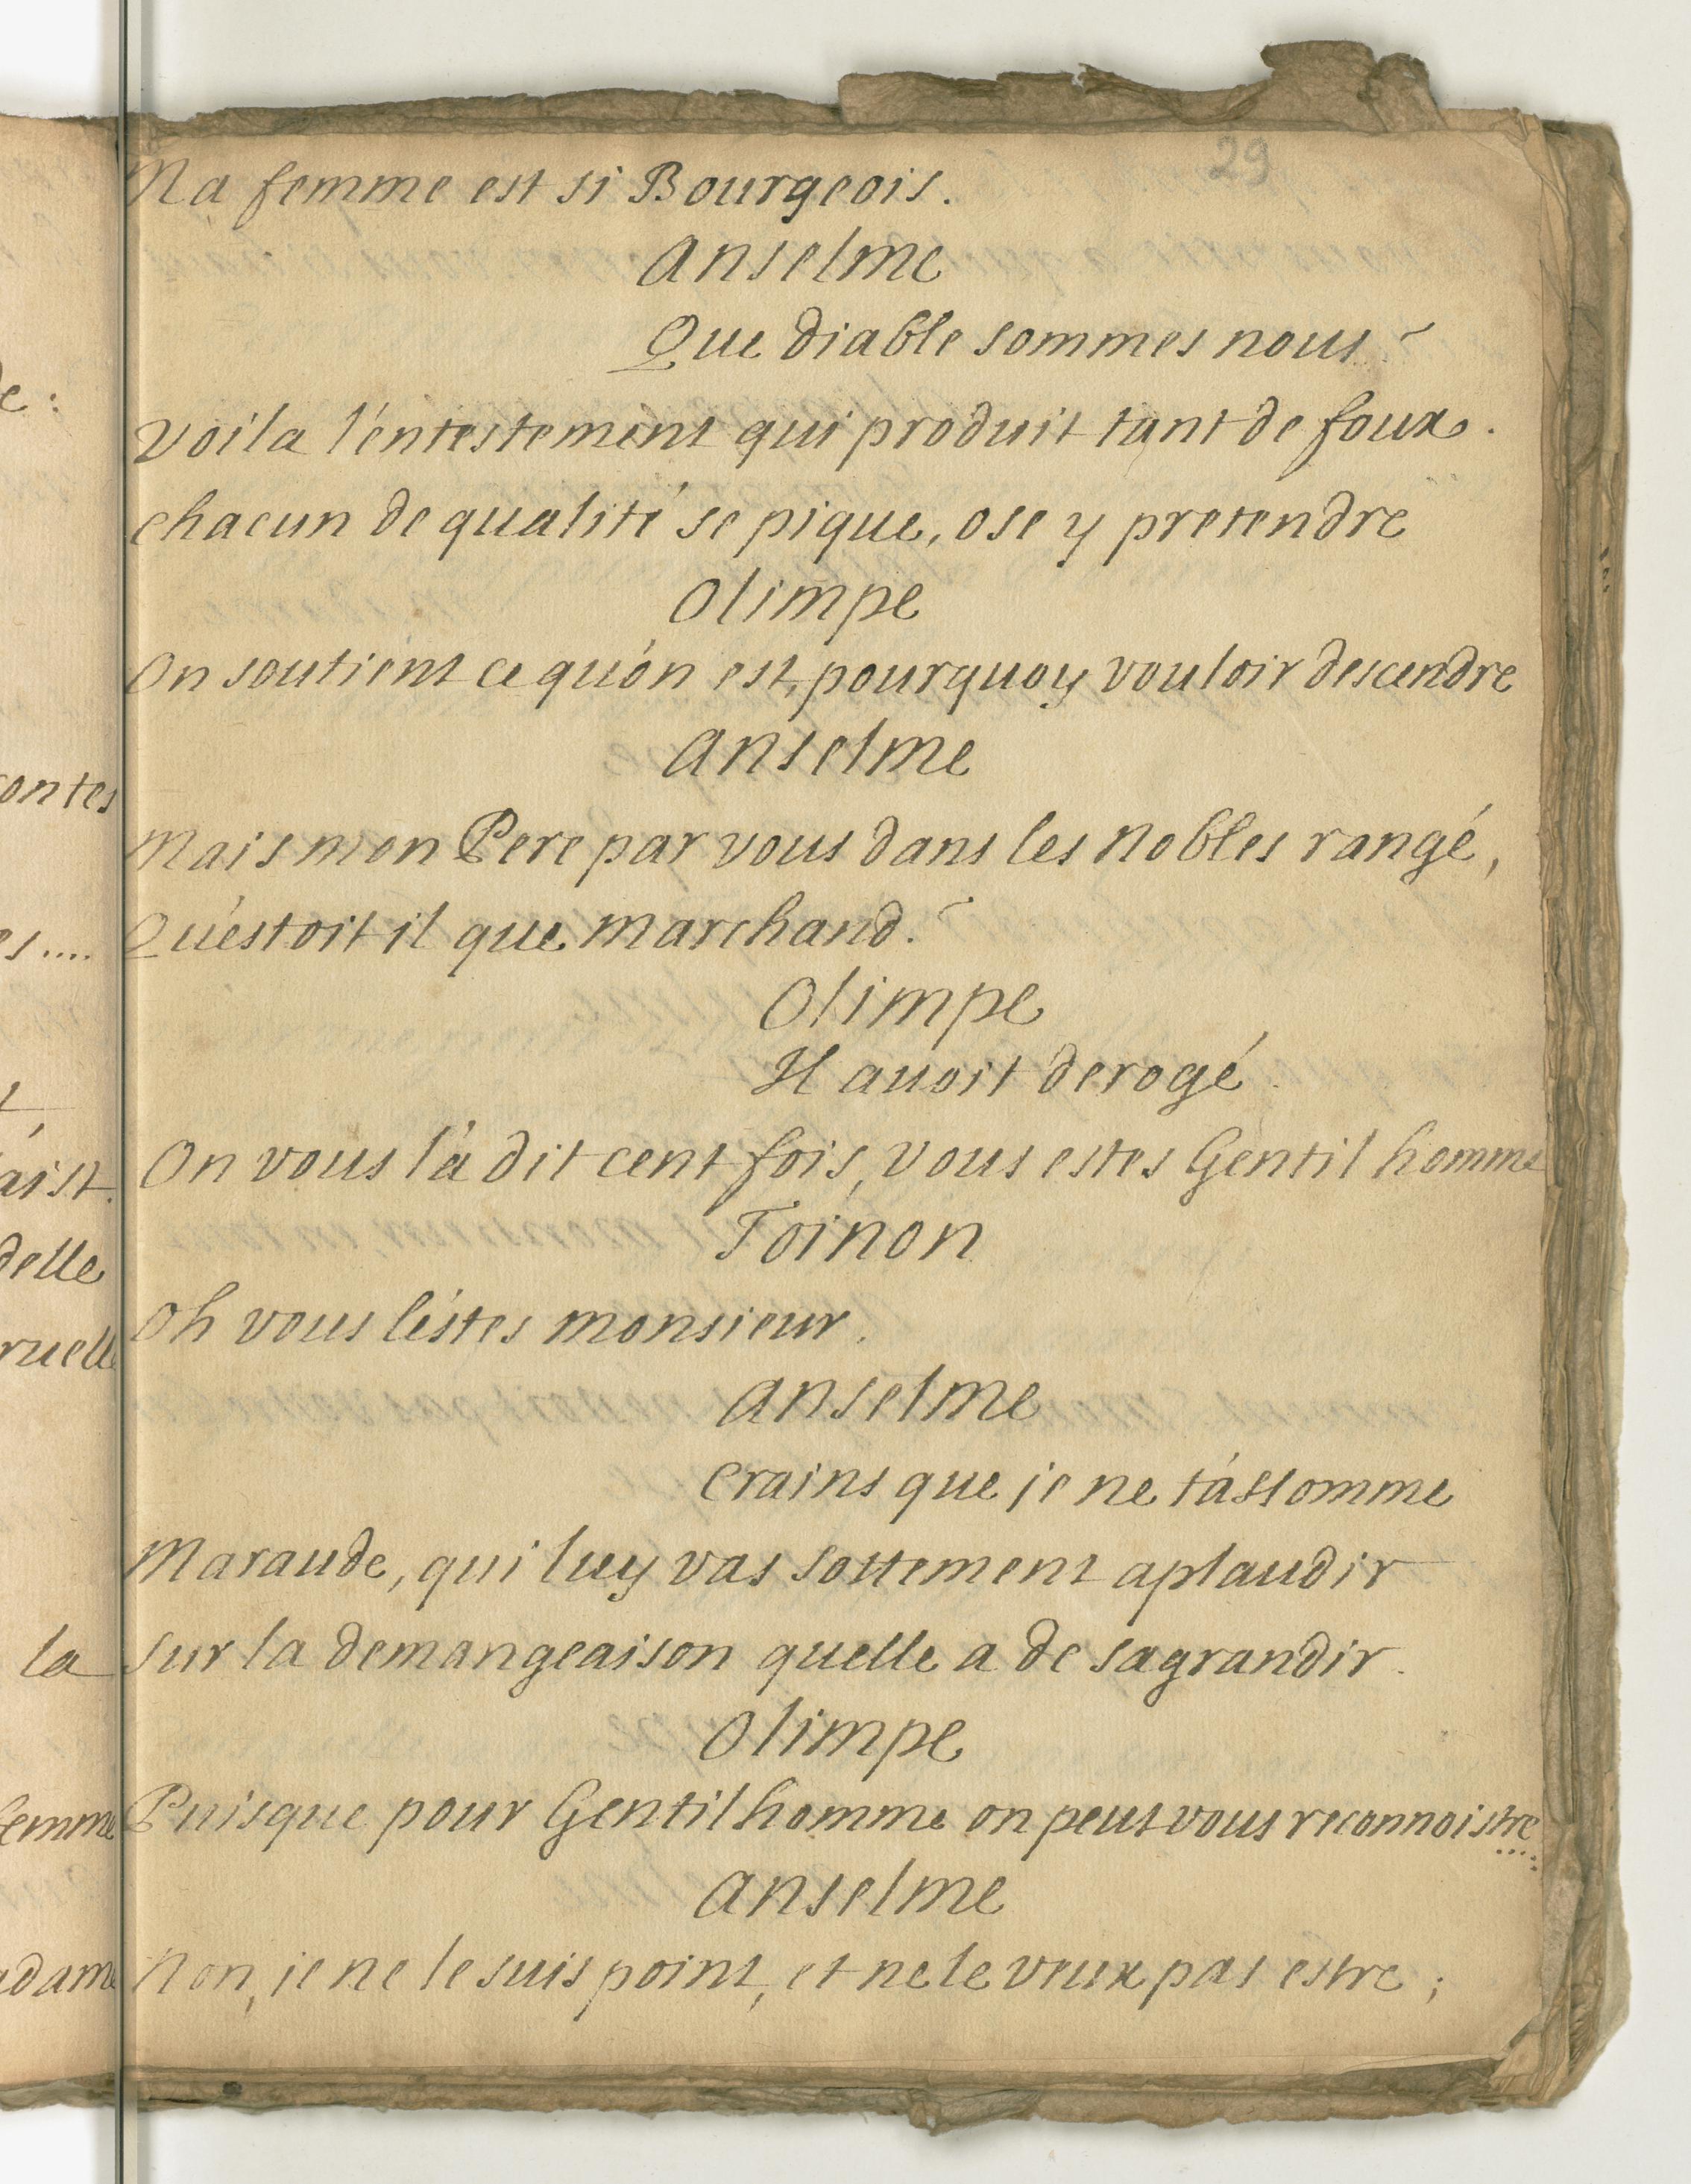 29
Ma femme est si Bourgeois.
Anselme
Que diable sommes nous?
Voila l'éntestement qui produit tant de foux.
chacun de qualité se pique, ose y pretendre
Olimpe
On soutient ce qu'ón est, pourquoy vouloir descendre
Anselme
Mais mon Pere par vous dans les nobles rangé,
Qu'estoit il que marchand?
Olimpe
Il auoit derogé.
On vous l'á dit cent fois, vous estes Gentil homme
Toinon
Oh vous l'éstes monsieur.
Anselme
Crains que je ne t'ássomme
Maraude, qui luy vas sottement aplaudir
sur la demangeaison quelle a de sagrandir.
Olimpe
Puisque pour Gentilhomme on peut vous reconnoistre....
Anselme
Non, je ne le suis point, et ne le veux pas estre;
e:
ontes
es....
aist.
delle
ruelle
la
femme
adame